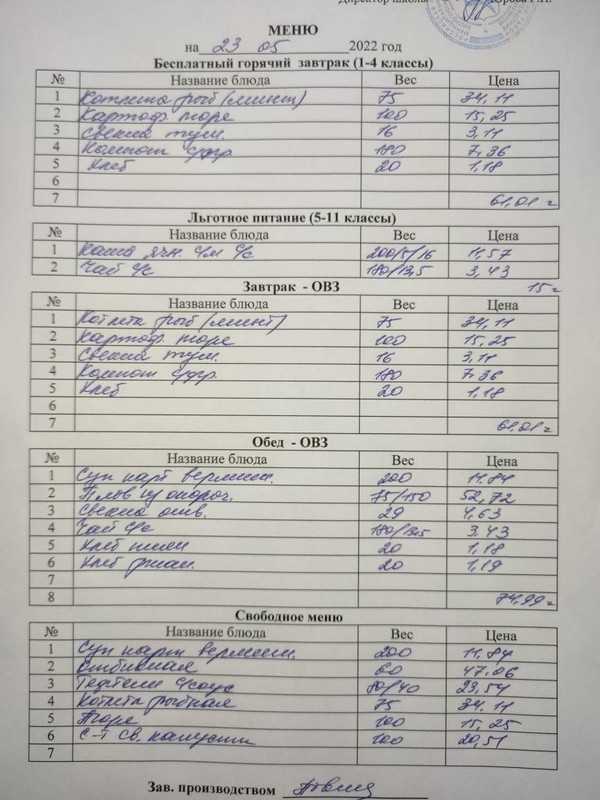 Директор школы
МЕНЮ
на 23 05 2022 год
Бесплатный горячий завтрак (1-4 классы)
№ Название блюда Вес Цена
1 Котлета рыб (минт) 75 34,11
2 Картоф. пюре 100 15,25
3 Свекла туш. 16 3,11
4 Компот с/фр. 180 7,36
5 Хлеб 20 1,18
6
7 61,01 г
Льготное питание (5-11 классы)
№ Название блюда Вес Цена
1 Каша ячн. с/м с/с 200/5/16 11,57
2 Чай с/с 180/13,5 3,43
Завтрак - ОВЗ 15 г
№ Название блюда Вес Цена
1 Котлета рыб (минт) 75 34,11
2 Картоф. пюре 100 15,25
3 Свекла туш. 16 3,11
4 Компот с/фр. 180 7,36
5 Хлеб 20 1,18
6
7 61,01 г
Обед - ОВЗ
№ Название блюда Вес Цена
1 Суп карт вермиш. 200 11,84
2 Плов из окороч. 75/150 52,72
3 Свекла отв. 29 4,63
4 Чай с/с 180/13,5 3,43
5 Хлеб пшен 20 1,18
6 Хлеб ржан. 20 1,19
7
8 74,99 г
Свободное меню
№ Название блюда Вес Цена
1 Суп карт вермиш. 200 11,84
2 Отбивная 60 47,06
3 Тефтели с/соус 80/40 23,54
4 Котлета рыбная 75 34,11
5 Пюре 100 15,25
6 С-т св. капусты 100 20,51
7
Зав. производством